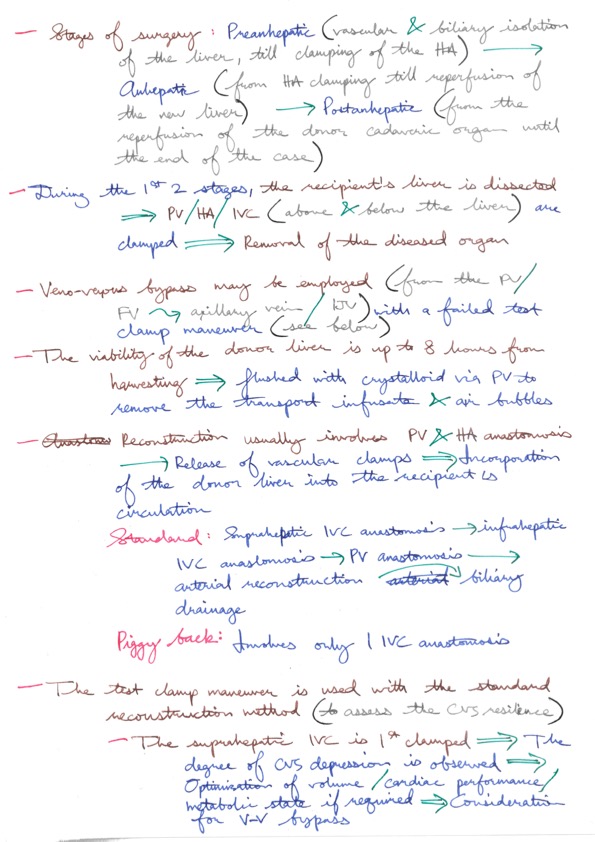 — Stages of surgery : Preanhepatic (vascular & biliary isolation
of the liver, till clamping of the HA) →
Anhepatic (from HA clamping till reperfusion of
the new liver) → Postanhepatic (from the
reperfusion of the donor cadaveric organ until
the end of the case)
— During the 1st 2 stages, the recipient's liver is dissected
⇒ PV/HA/IVC (above & below the liver) are
clamped ⇒ Removal of the diseased organ
— Veno-venous bypass may be employed (from the PV/
FV ⤳ axillary vein / IJV) with a failed test
clamp maneuver (see below)
— The viability of the donor liver is up to 8 hours from
harvesting ⇒ flushed with crystalloid via PV to
remove the transport infusate & air bubbles
— Reconstruction usually involves PV & HA anastomosis
→ Release of vascular clamps ⇒ Incorporation
of the donor liver into the recipient's
circulation
Standard: Suprahepatic IVC anastomosis → infrahepatic
IVC anastomosis → PV anastomosis →
arterial reconstruction → biliary
drainage
Piggy back: Involves only 1 IVC anastomosis
— The test clamp maneuver is used with the standard
reconstruction method (to assess the CVS resilence)
— The suprahepatic IVC is 1st clamped ⇒ The
degree of CVS depression is observed ⇒
Optimization of volume / cardiac performance/
metabolic state if required ⇒ Consideration
for V-V bypass